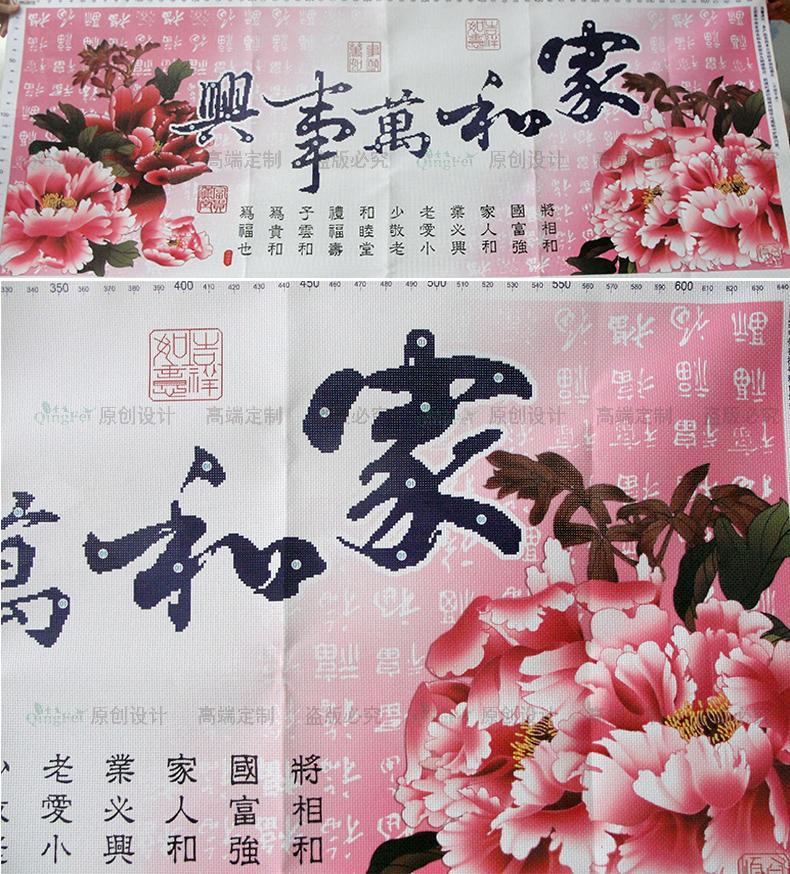 家和萬事興
吉祥
如意
將相和
國富強
家人和
業必興
老愛小
少敬老
和睦堂
禮福壽
子雲和
爲貴和
爲福也
高端定制 盗版必究 QingFei 原创设计 高端定制 盗版必究
330 350 360 370 380 390 400 410 420 430 440 450 460 470 480 490 500 510 520 530 540 550 560 570 580 590 600 610 620 630 640
吉祥
如意
家和萬
QingFei 原创设计 高端定制 盗版必究 QingFei 原创设计 高端定制 盗版必究
福
QingFei 原创设计 高端定制 盗版必究 QingFei 原创设计 高端定制 盗版必究
將相和
國富強
家人和
業必興
老愛小